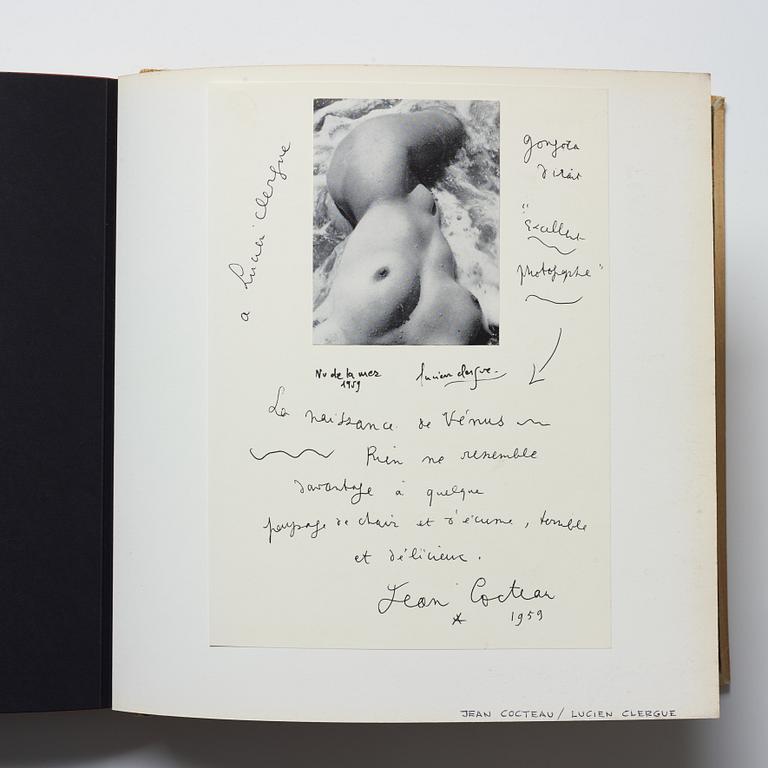 a Lucien Clergue
Gongora
dirait
"Excellent
photographe"
Nu de la mer
1959
Lucien Clergue
La naissance de Vénus
Rien ne ressemble
davantage à quelque
paysage de chair et d'écume, terrible
et délicieux.
Jean Cocteau
* 1959
JEAN COCTEAU / LUCIEN CLERGUE